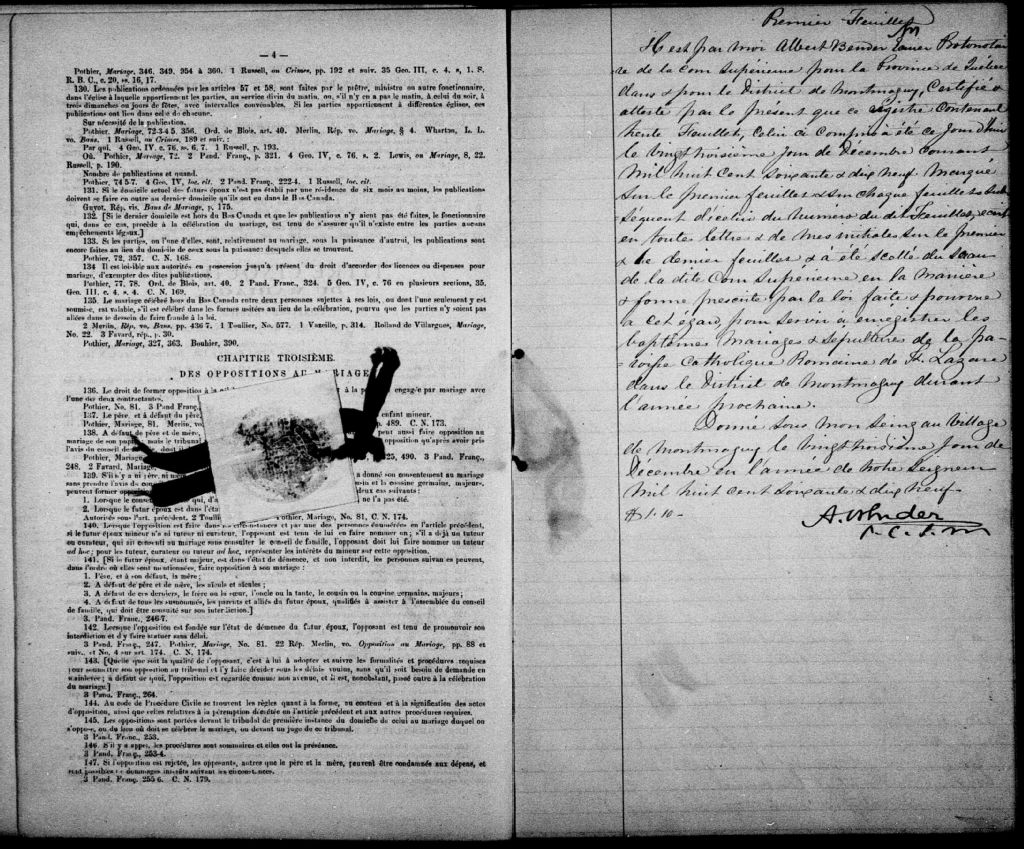 — 4 —
Pothier, Mariage, 346, 349, 954 à 360. 1 Russell, on Crimes, pp. 192 et suiv. 35 Geo. III, c. 4. s, 1. S.
R. B. C., c. 20, ss. 16, 17.
130. Les publications ordonnées par les articles 57 et 58, sont faites par le prêtre, ministre ou autre fonctionnaire,
dans l'église à laquelle appartiennent les parties, au service divin du matin, ou, s'il n'y en a pas le matin, à celui du soir, à
trois dimanches ou jours de fêtes, avec intervalles convenables. Si les parties appartiennent à différentes églises, ces
publications ont lieu dans celle de chacune.
Sur nécessité de la publication.
Pothier, Mariage, 72-3-4-5, 356. Ord. de Blois, art. 40. Merlin, Rép. vo. Mariage, § 4. Wharton, L. L.
vo. Bans. 1 Russell, on Crimes, 189 et suiv.:
Par qui. 4 Geo. IV. c. 76, ss. 6, 7. 1 Russell, p. 193.
Où. Pothier, Mariage, 72. 2 Pand. Franç., p. 321. 4 Geo. IV, c. 76, s. 2. Lewis, on Mariage, 8, 22.
Russell, p. 190.
Nombre de publications et quand.
Pothier, 74 5-7. 4 Geo. IV, loc. cit. 2 Pand. Franç., 222-4. 1 Russell, loc. cit.
131. Si le domicile actuel des futurs époux n'est pas établi par une résidence de six mois au moins, les publications
doivent se faire en outre au dernier domicile qu'ils ont eu dans le Bas Canada.
Guyot, Rép. vis. Bans de Mariage, p. 175.
132. [Si le dernier domicile est hors du Bas Canada et que les publications n'y aient pas été faites, le fonctionnaire
qui, dans ce cas, procède à la célébration du mariage, est tenu de s'assurer qu'il n'existe entre les parties aucuns
empêchements légaux.]
133. Si les parties, ou l'une d'elles, sont, relativement au mariage, sous la puissance d'autrui, les publications sont
encore faites au lieu du domicile de ceux sous la puissance desquels elles se trouvent.
Pothier, 72, 357. C. N. 168.
134 Il est loisible aux autorités en possession jusqu'à présent du droit d'accorder des licences ou dispenses pour
mariage, d'exempter des dites publications.
Pothier, 77, 78. Ord. de Blois, art. 40. 2 Pand. Franc., 324. 5 Geo. IV, c. 76 en plusieurs sections, 35,
Geo. III, c. 4. s. 4. C. N. 169.
135. Le mariage célébré hors du Bas Canada entre deux personnes sujettes à ses lois, ou dont l'une seulement y est
soumise, est valable, s'il est célébré dans les formes usitées au lieu de la célébration, pourvu que les parties n'y soient pas
allées dans le dessein de faire fraude à la loi.
2 Merlin, Rép. vo. Bans, pp. 436 7. 1 Toullier, No. 577. 1 Vazeille, p. 314. Rolland de Villargues, Mariage,
No. 22. 3 Favard, rép., p. 30.
Pothier, Mariage, 327, 363. Bouhier, 390.
CHAPITRE TROISIÈME.
DES OPPOSITIONS AU MARIAGE
136. Le droit de former opposition à la à la engagée par mariage avec
l'une des deux contractantes.
Pothier, No. 81. 3 Pand Franç.
137. Le père, et à défaut du père, enfant mineur.
Pothier, Mariage, 81. Merlin, vo. p. 489. C. N. 173.
138. A défaut de père et de mère, peut aussi faire opposition au
mariage de son pupille, mais le tribunal opposition qu'après avoir pris
l'avis du conseil de
Pothier, Mariage 325, 490. 3 Pand. Franç.,
248. 2 Favard, Mariage,
139. S'il n'y a ni père, ni mère a donné son consentement au mariage
sans prendre l'avis du sin et la cousine germains, majeurs,
peuvent former opposition deux cas suivants:
1. Lorsque le conseil qui, d'a ne l'a pas été.
2. Lorsque le futur époux est dans l'état
Autorités sous l'art. précédent. 2 Toullier Pothier, Mariage, No. 81, C. N. 174.
140. Lorsque l'opposition est faite dans ces circonstances et par une des personnes énumérées en l'article précédent,
si le futur époux mineur n'a ni tuteur ni curateur, l'opposant est tenu de lui en faire nommer un; s'il a déjà un tuteur
ou curateur, qui ait consenti au mariage sans consulter le conseil de famille, l'opposant doit lui faire nommer un tuteur
ad hoc; pour les tuteur, curateur ou tuteur ad hoc, représenter les intérêts du mineur sur cette opposition.
141. [Si le futur époux, étant majeur, est dans l'état de démence, et non interdit, les personnes suivantes peuvent,
dans l'ordre où elles sont mentionnées, faire opposition à son mariage:
1. Père, et à son défaut, la mère;
2. A défaut de père et de mère, les aïeuls et aïeules;
3. A défaut de ces derniers, le frère ou la sœur, l'oncle ou la tante, le cousin ou la cousine germains, majeurs;
4. A défaut de tous les susnommés, les parents et alliés du futur époux, qualifiés à assister à l'assemblée du conseil
de famille, qui doit être consulté sur son interdiction.]
3. Pand. Franc., 246-7.
142. Lorsque l'opposition est fondée sur l'état de démence du futur époux, l'opposant est tenu de promouvoir son
interdiction et d'y faire statuer sans délai.
3 Pand. Franç., 247. Pothier, Mariage, No. 81. 22 Rép. Merlin, vo. Opposition au Mariage, pp. 88 et
suiv., et No. 4 sur art. 174. C. N. 174.
143. [Quelle que soit la qualité de l'opposant, c'est à lui à adopter et suivre les formalités et procédures requises
pour soumettre son opposition au tribunal et l'y faire décider sous les délais voulus, sans qu'il soit besoin de demande en
mainlevée; à défaut de quoi, l'opposition est regardée comme non avenue, et il est, nonobstant, passé outre à la célébration
du mariage.]
3 Pand. Franç., 264.
144. Au code de Procédure Civile se trouvent les règles quant à la forme, au contenu et à la signification des actes
d'opposition, ainsi que celles relatives à la péremption décrétée en l'article précédent et aux autres procédures requises.
145. Les oppositions sont portées devant le tribunal de première instance du domicile de celui au mariage duquel on
s'oppose, ou du lieu où doit se célébrer le mariage, ou devant un juge de ce tribunal.
3 Pand. Franc., 253.
146. S'il y a appel, les procédures sont sommaires et elles ont la préséance.
3 Pand. Franç., 253-4.
147. Si l'opposition est rejetée, les opposants, autres que le père et la mère, peuvent être condamnés aux dépens, et
sont passibles de dommages intérêts suivant les circonstances.
3 Pand. Franç. 255 6. C. N. 179.
Premier Feuillet
Il est par moi Albert Bender Ecuier Protonotai
re de la Cour Supérieure pour la Province de Québec
dans & pour le District de Montmagny, Certifié &
attesté par le présent que ce Régistre contenant
trente Feuillets, Celui ci Compris a été ce Jour d'hui
le vingt troisième Jour de Décembre Courant
Mil huit Cent Soixante & dix neuf Marqué
sur le premier feuillet & sur chaque feuillet Sub
séquent d'icelui du Numéro du dit Feuillet, écrit
en toutes lettres & de mes initiales sur le premier
& le dernier feuillets & a été scellé du Sceau
de la dite Cour Supérieure en la Manière
& forme prescrite par la loi faite & pourvue
à cet égard, pour servir à enregistrer les
baptêmes Mariages & sépultures de la pa-
roisse Catholique Romaine de St. Lazare
dans le District de Montmagny durant
l'année prochaine.
Donné sous mon Seing au Village
de Montmagny le vingt troisième Jour de
Décembre en l'année de Notre Seigneur
Mil huit cent Soixante & dix neuf.
$1.10 -
A. Bender
P. C. S. M